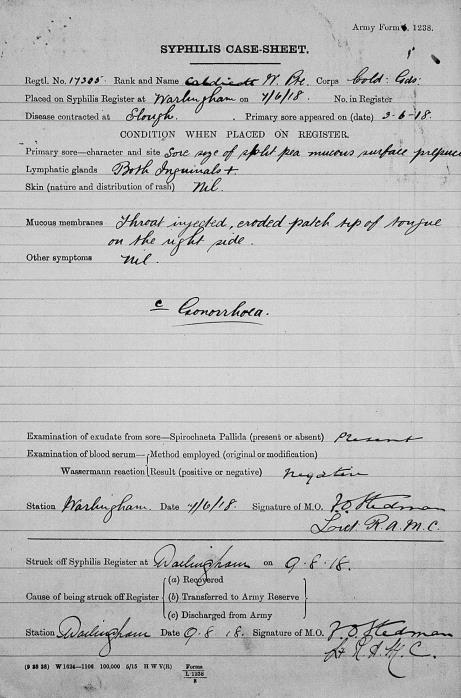 Army Form I. 1238.
SYPHILIS CASE-SHEET.
Regtl. No. 17305 Rank and Name W. Pte. Corps Cold: Gds:
Placed on Syphilis Register at Warlingham on 4/6/18. No. in Register
Disease contracted at Slough. Primary sore appeared on (date) 3-6-18.
CONDITION WHEN PLACED ON REGISTER.
Primary sore—character and site Sore size of split pea mucous surface prepuce
Lymphatic glands Both Inguinals +
Skin (nature and distribution of rash) Nil.
Mucous membranes Throat injected, eroded patch tip of tongue
on the right side.
Other symptoms nil.
c Gonorrhoea.
Examination of exudate from sore—Spirochaeta Pallida (present or absent) Present
Examination of blood serum— Method employed (original or modification)
Wassermann reaction Result (positive or negative) negative
Station Warlingham. Date 4/6/18. Signature of M.O. Stedman
Lieut R.A.M.C.
Struck off Syphilis Register at Warlingham on 9.8.18.
(a) Recovered
Cause of being struck off Register (b) Transferred to Army Reserve
(c) Discharged from Army
Station Warlingham Date 9.8.18. Signature of M.O. Stedman
Lt R.A.M.C.
(9 38 38) W 1624—1106 100,000 5/15 H W V(R) Forms
I.1238
8